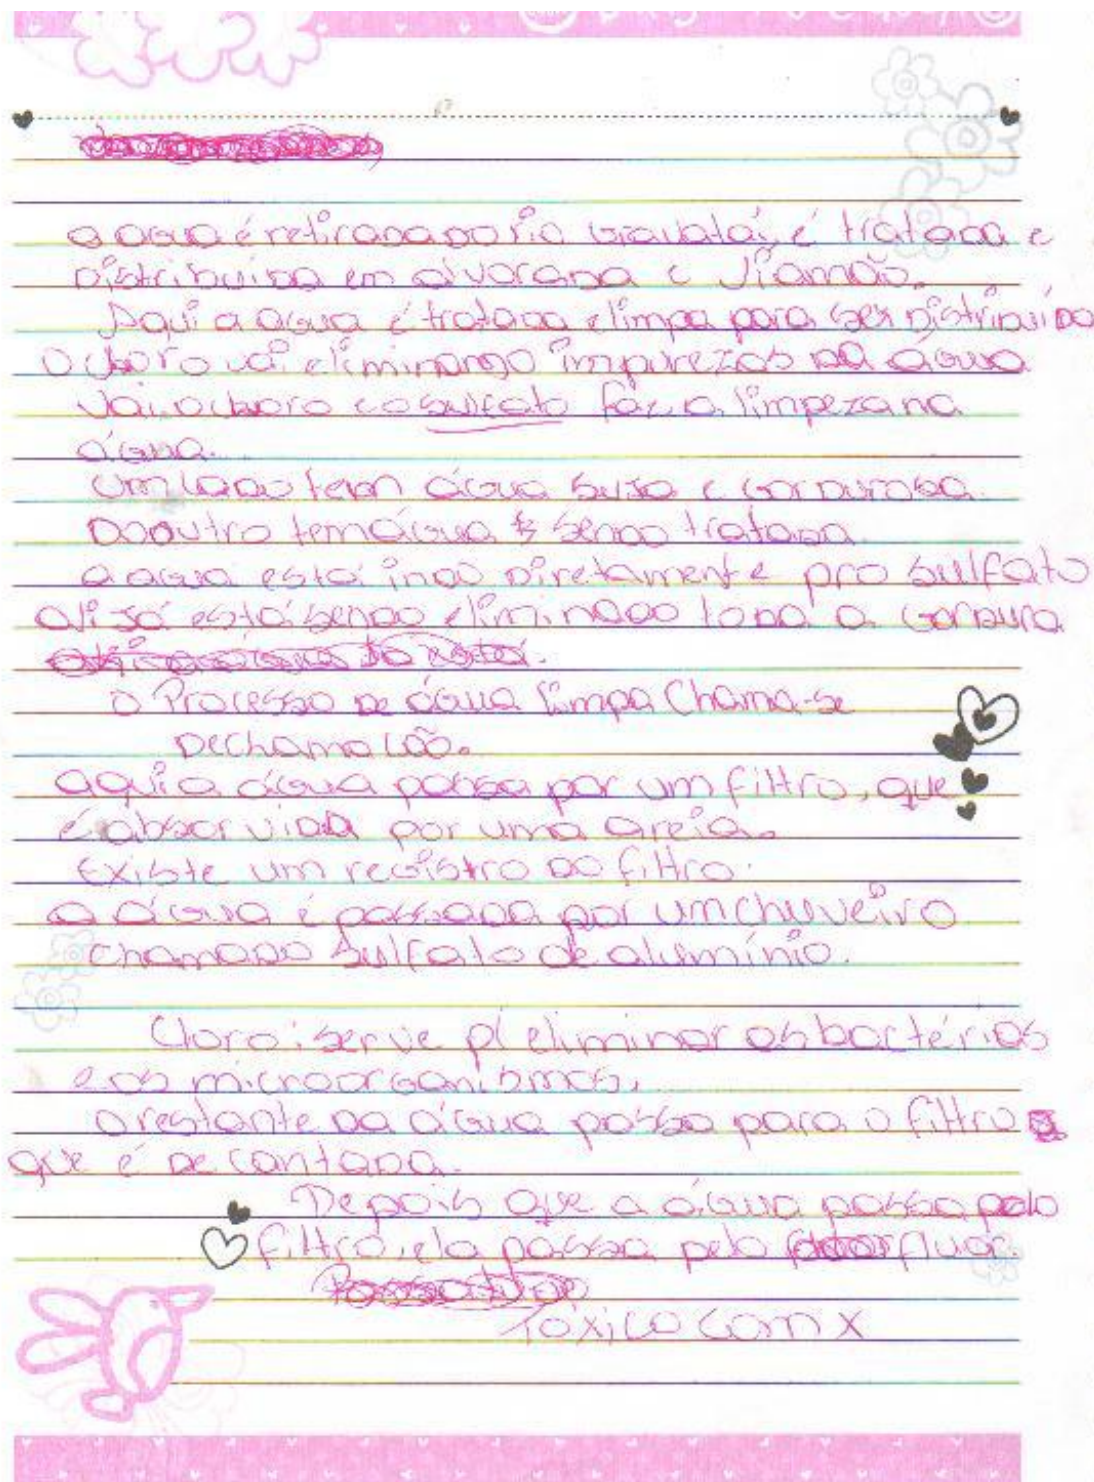 a agua é retirada do rio gravataí, é tratada e
distribuida em alvorada e viamão.
Aqui a agua é tratada e limpa para ser distribuida
O cloro vai eliminando impurezas da água
Vai o cloro e o sulfato faz a limpeza na
água.
um lado tem água suja e gordurosa.
Do outro tem água sendo tratada
a agua está indo diretamente pro sulfato
ali já está sendo eliminado toda a gordura
O Processo de água limpa Chama-se
Dechamação.
aqui a água passa por um filtro, que
é absorvida por uma areia.
Existe um registro do filtro.
a água é passada por um chuveiro
chamado Sulfato de alumínio.
Cloro: serve p/ eliminar as bactérias
e os microorganismos.
O restante da água passa para o filtro
que é decantada.
Depois que a água passa pelo
filtro, ela passa pelo fluor.
Tóxico com x